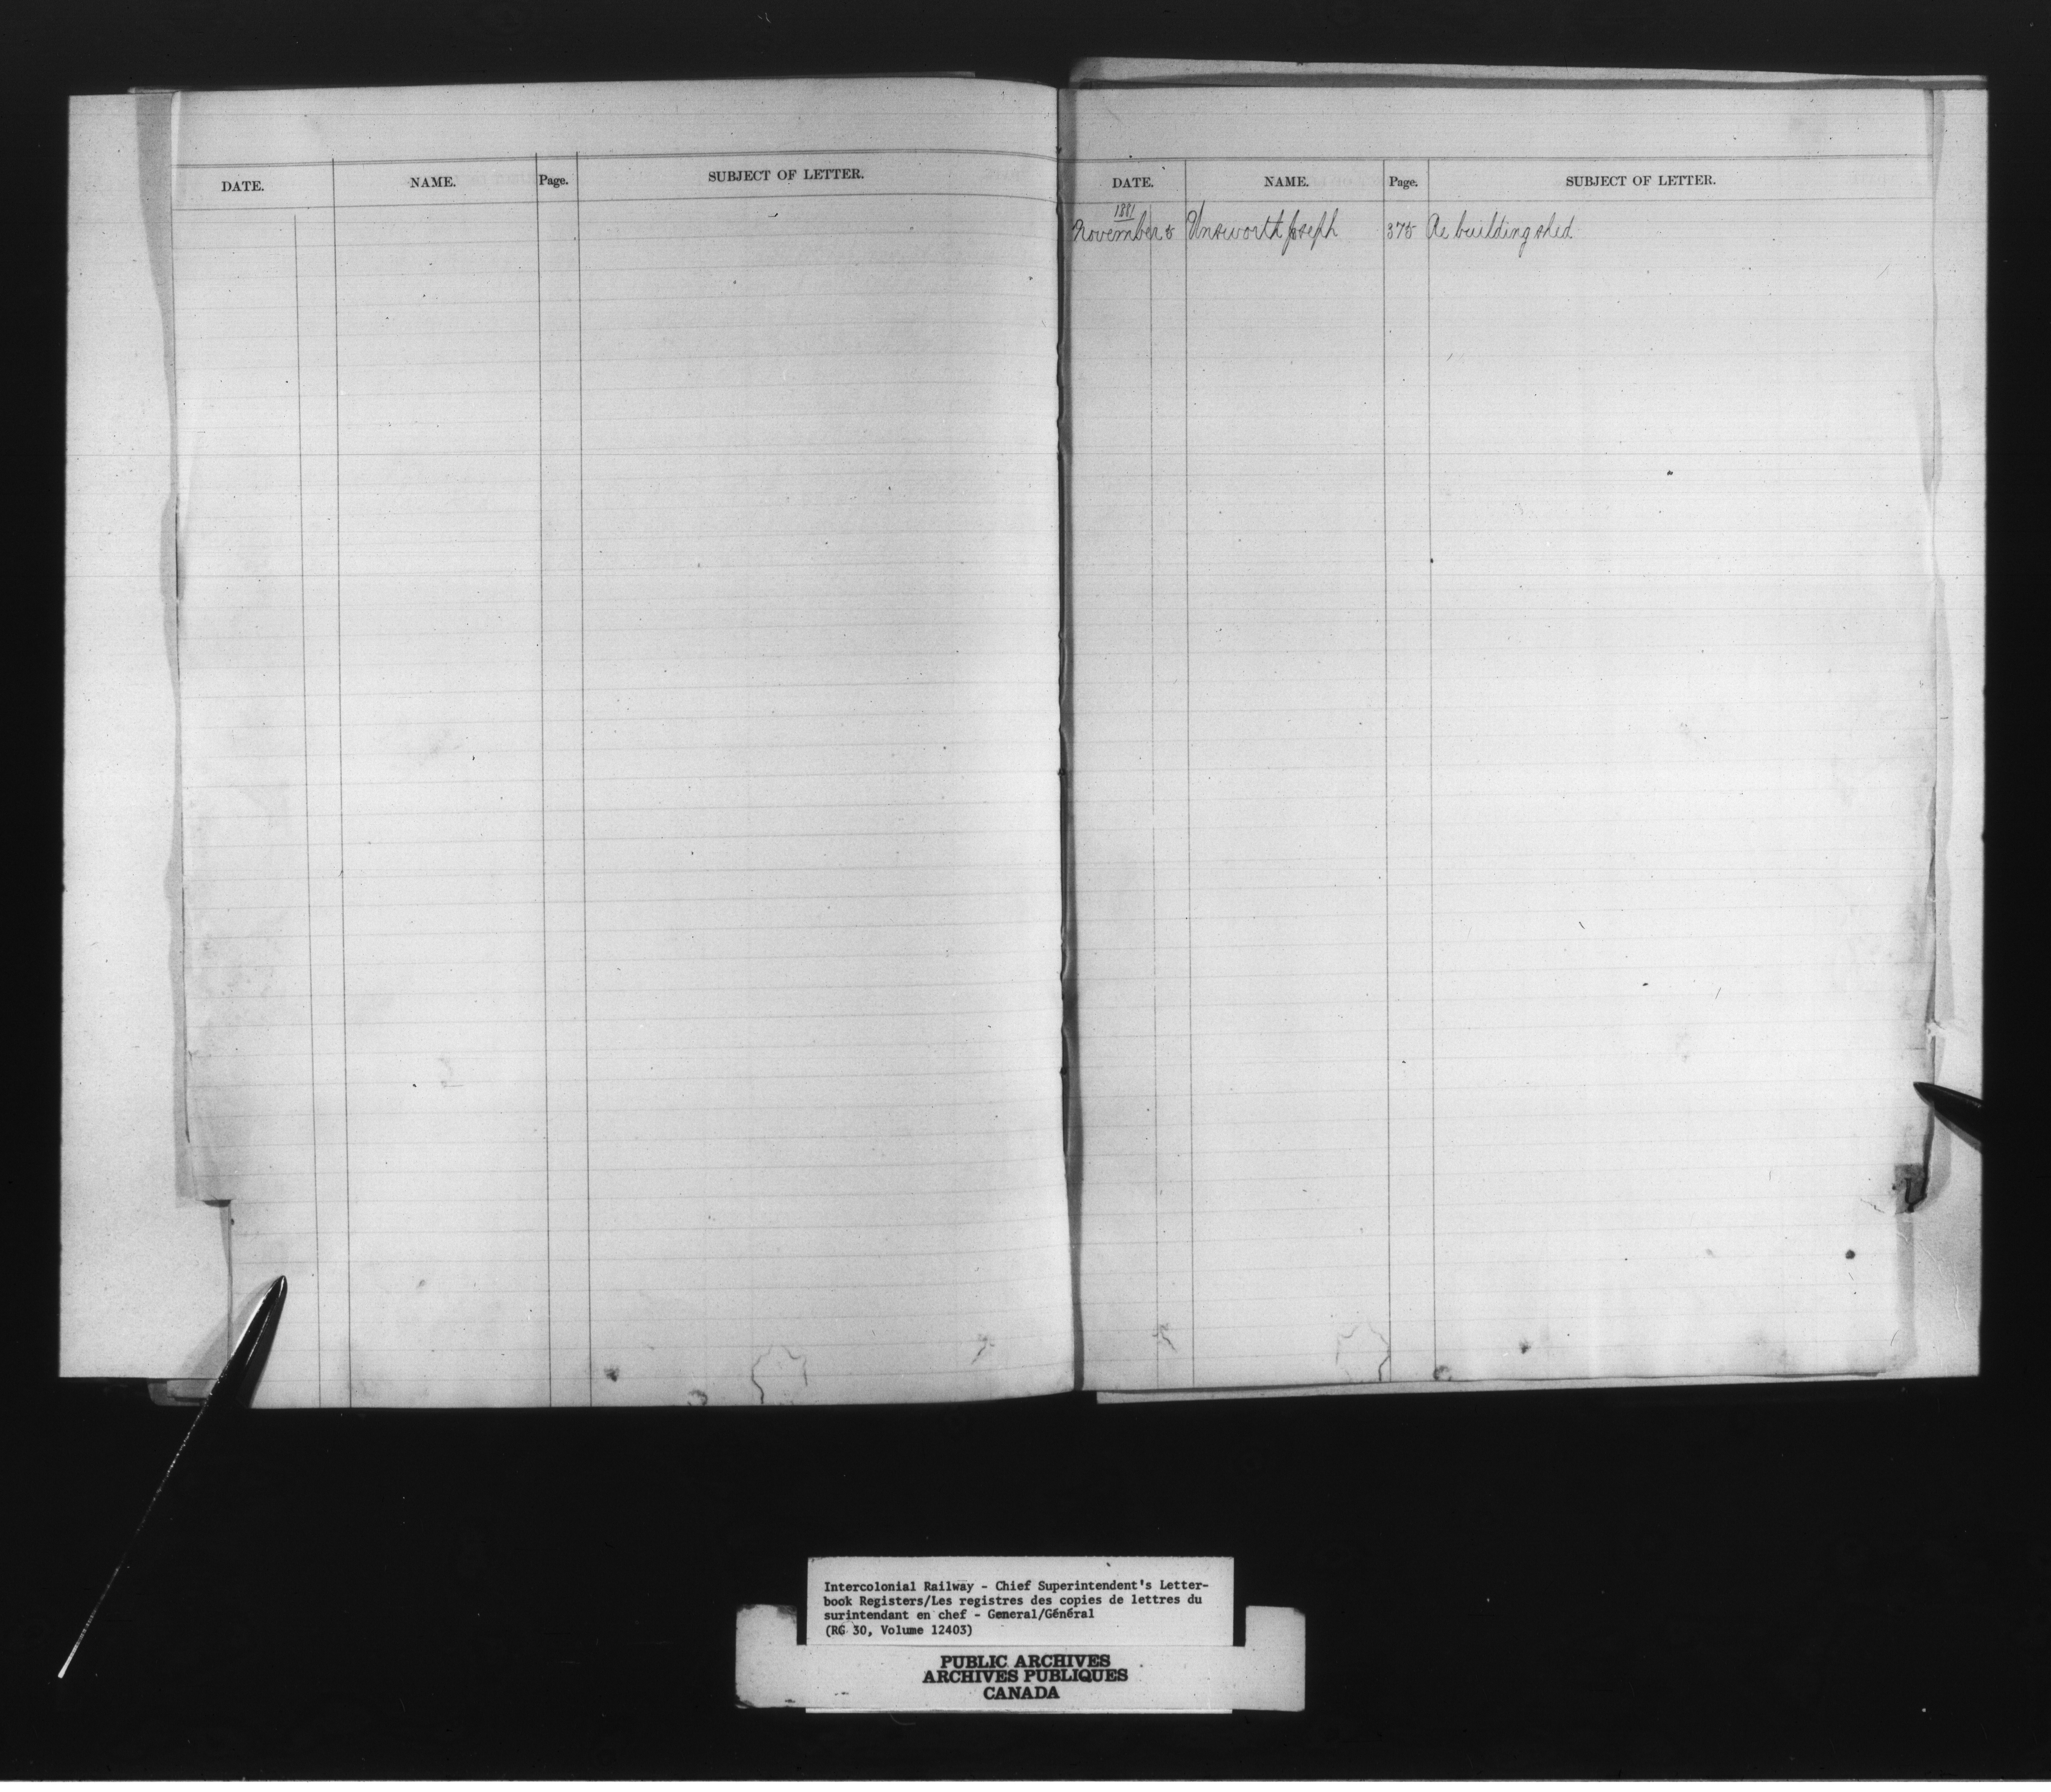 DATE. NAME. Page. SUBJECT OF LETTER.
DATE. NAME. Page. SUBJECT OF LETTER.
1881
November 5 Unsworth Joseph 375 Re building shed
Intercolonial Railway - Chief Superintendent's Letter-
book Registers/Les registres des copies de lettres du
surintendant en chef - General/Général
(RG 30, Volume 12403)
PUBLIC ARCHIVES
ARCHIVES PUBLIQUES
CANADA